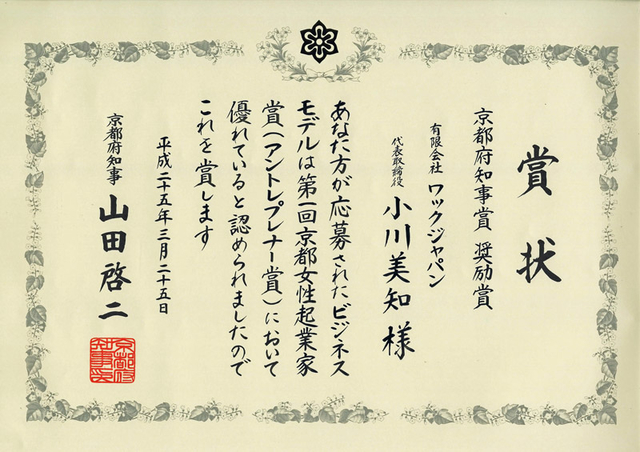 賞状
京都府知事賞 奨励賞
有限会社 ワックジャパン
代表取締役 小川美知 様
あなた方が応募されたビジネス
モデルは第一回京都女性起業家
賞(アントレプレナー賞)において
優れていると認められましたので
これを賞します
平成二十五年三月二十五日
京都府知事 山田啓二
京都府
知事印